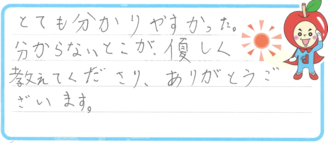 とても分かりやすかった。
分からないとこが、優しく
教えてくださり、ありがとうご
ざいます。